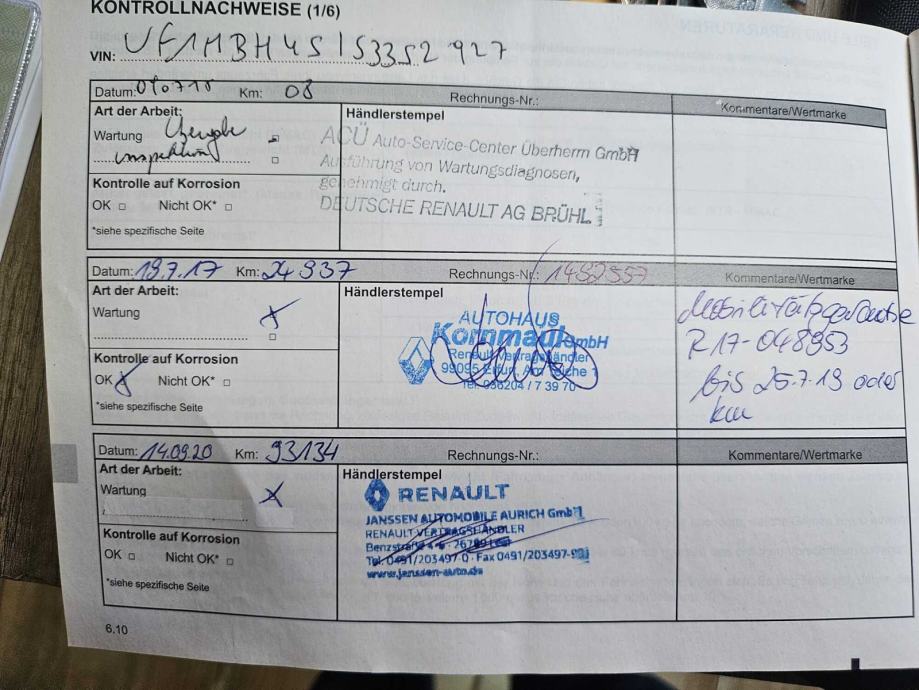 KONTROLLNACHWEISE (1/6)
VIN: VF1MBH4S153352927
Datum: 010710 Km: 08 Rechnungs-Nr.: Kommentare/Wertmarke
Art der Arbeit: Händlerstempel
Wartung Übergabe
inspektion
ACÜ Auto-Service-Center Überherrn GmbH
Ausführung von Wartungsdiagnosen,
genehmigt durch.
DEUTSCHE RENAULT AG BRÜHL
Kontrolle auf Korrosion
OK Nicht OK*
*siehe spezifische Seite
Datum: 19.7.17 Km: 24937 Rechnungs-Nr.: 1492557 Kommentare/Wertmarke
Art der Arbeit: Händlerstempel
Wartung
AUTOHAUS
Kornmaul GmbH
Renault Vertragshändler
99095 Erfurt, Am Teiche 1
Tel. 036204 / 7 39 70
Mobilitätsgarantie
R17-048953
bis 25.7.19 oder
km
Kontrolle auf Korrosion
OK Nicht OK*
*siehe spezifische Seite
Datum: 14.09.20 Km: 93134 Rechnungs-Nr.: Kommentare/Wertmarke
Art der Arbeit: Händlerstempel
Wartung
RENAULT
JANSSEN AUTOMOBILE AURICH GmbH
RENAULT VERTRAGSHÄNDLER
Benzstraße
Tel. 0491/203497-0 · Fax 0491/203497-
www.janssen-auto.de
Kontrolle auf Korrosion
OK Nicht OK*
*siehe spezifische Seite
6.10